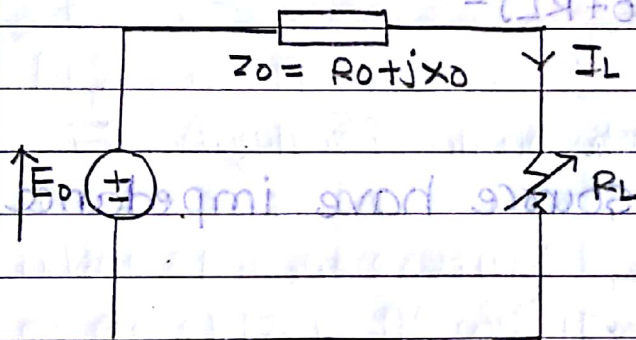 Z0 = R0+jX0
IL
E0
±
RL